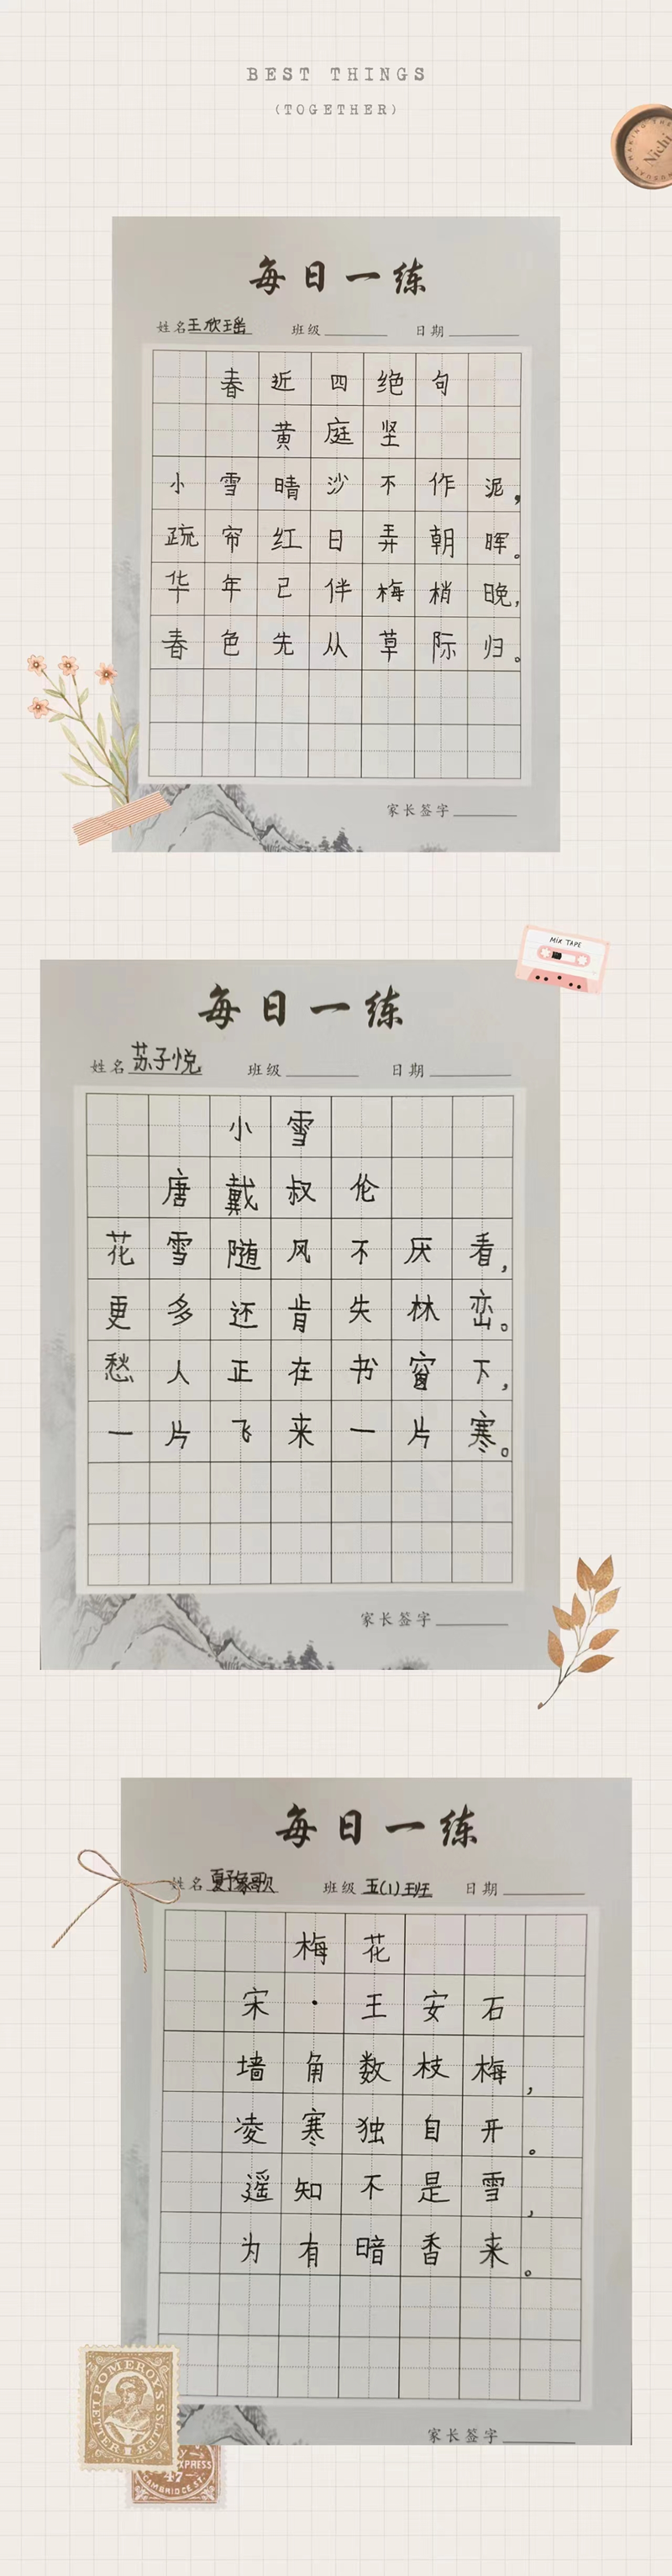 BEST THINGS
(TOGETHER)
Nichi
每日一练
姓名 王欣瑶 班级 日期
春近四绝句
黄庭坚
小雪晴沙不作泥,
疏帘红日弄朝晖。
华年已伴梅梢晚,
春色先从草际归。
家长签字
MIX TAPE
每日一练
姓名 苏子悦 班级 日期
小雪
唐戴叔伦
花雪随风不厌看,
更多还肯失林峦。
愁人正在书窗下,
一片飞来一片寒。
家长签字
每日一练
姓名 夏豫歌 班级 五(1)班 日期
梅花
宋·王安石
墙角数枝梅,
凌寒独自开。
遥知不是雪,
为有暗香来。
家长签字
POMEROY'S
LETTER
EXPRESS
CAMBRIDGE ST.